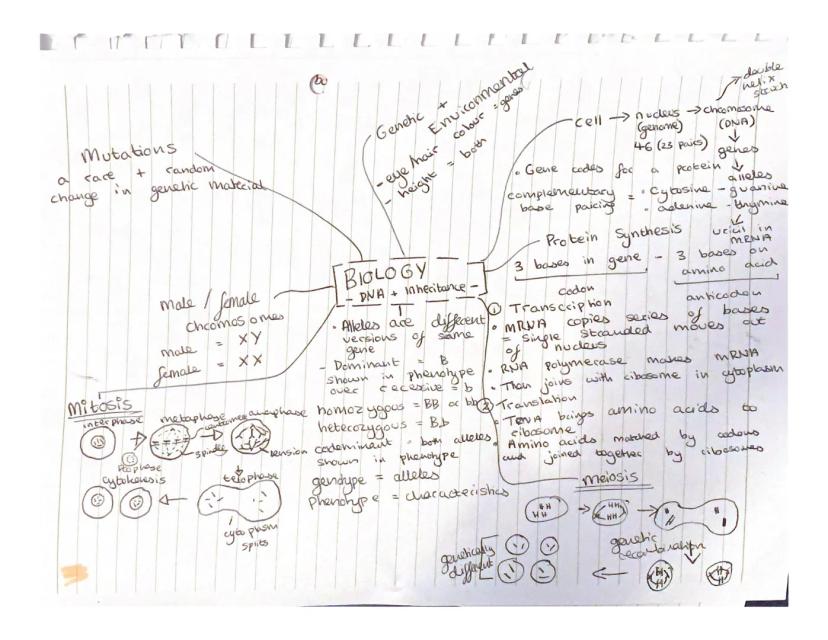 Mutations
a rare + random
change in genetic material
Genetic +
Environmental
- eye/hair colour = genes
- height = both
cell → nucleus → chromosome → double helix struct
(genome) (DNA)
46 (23 pairs) genes
• Gene codes for a protein alleles
complementary = • Cytosine - guanine
base pairing • adenine - thymine
uracil in
mRNA
Protein Synthesis
3 bases in gene - 3 bases on
amino acid
codon anticodon
BIOLOGY
- DNA + Inheritance -
① Transcription
• mRNA copies series of bases
= single stranded moves out
of nucleus
• RNA polymerase makes mRNA
• Then joins with ribosome in cytoplasm
② Translation
• TRNA brings amino acids to
ribosome
• Amino acids matched by codons
and joined together by ribosomes
Male / female
chromosomes
male = XY
female = XX
• Alleles are different
versions of same
gene
- Dominant = B
shown in phenotype
over recessive = b
homozygous = BB or bb
heterozygous = Bb
codominant = both alleles
shown in phenotype
genotype = alleles
phenotype = characteristics
Mitosis
interphase metaphase anaphase
prophase spindle tension
cytokenesis telophase
cytoplasm
splits
meiosis
genetic
recombination
genetically
different